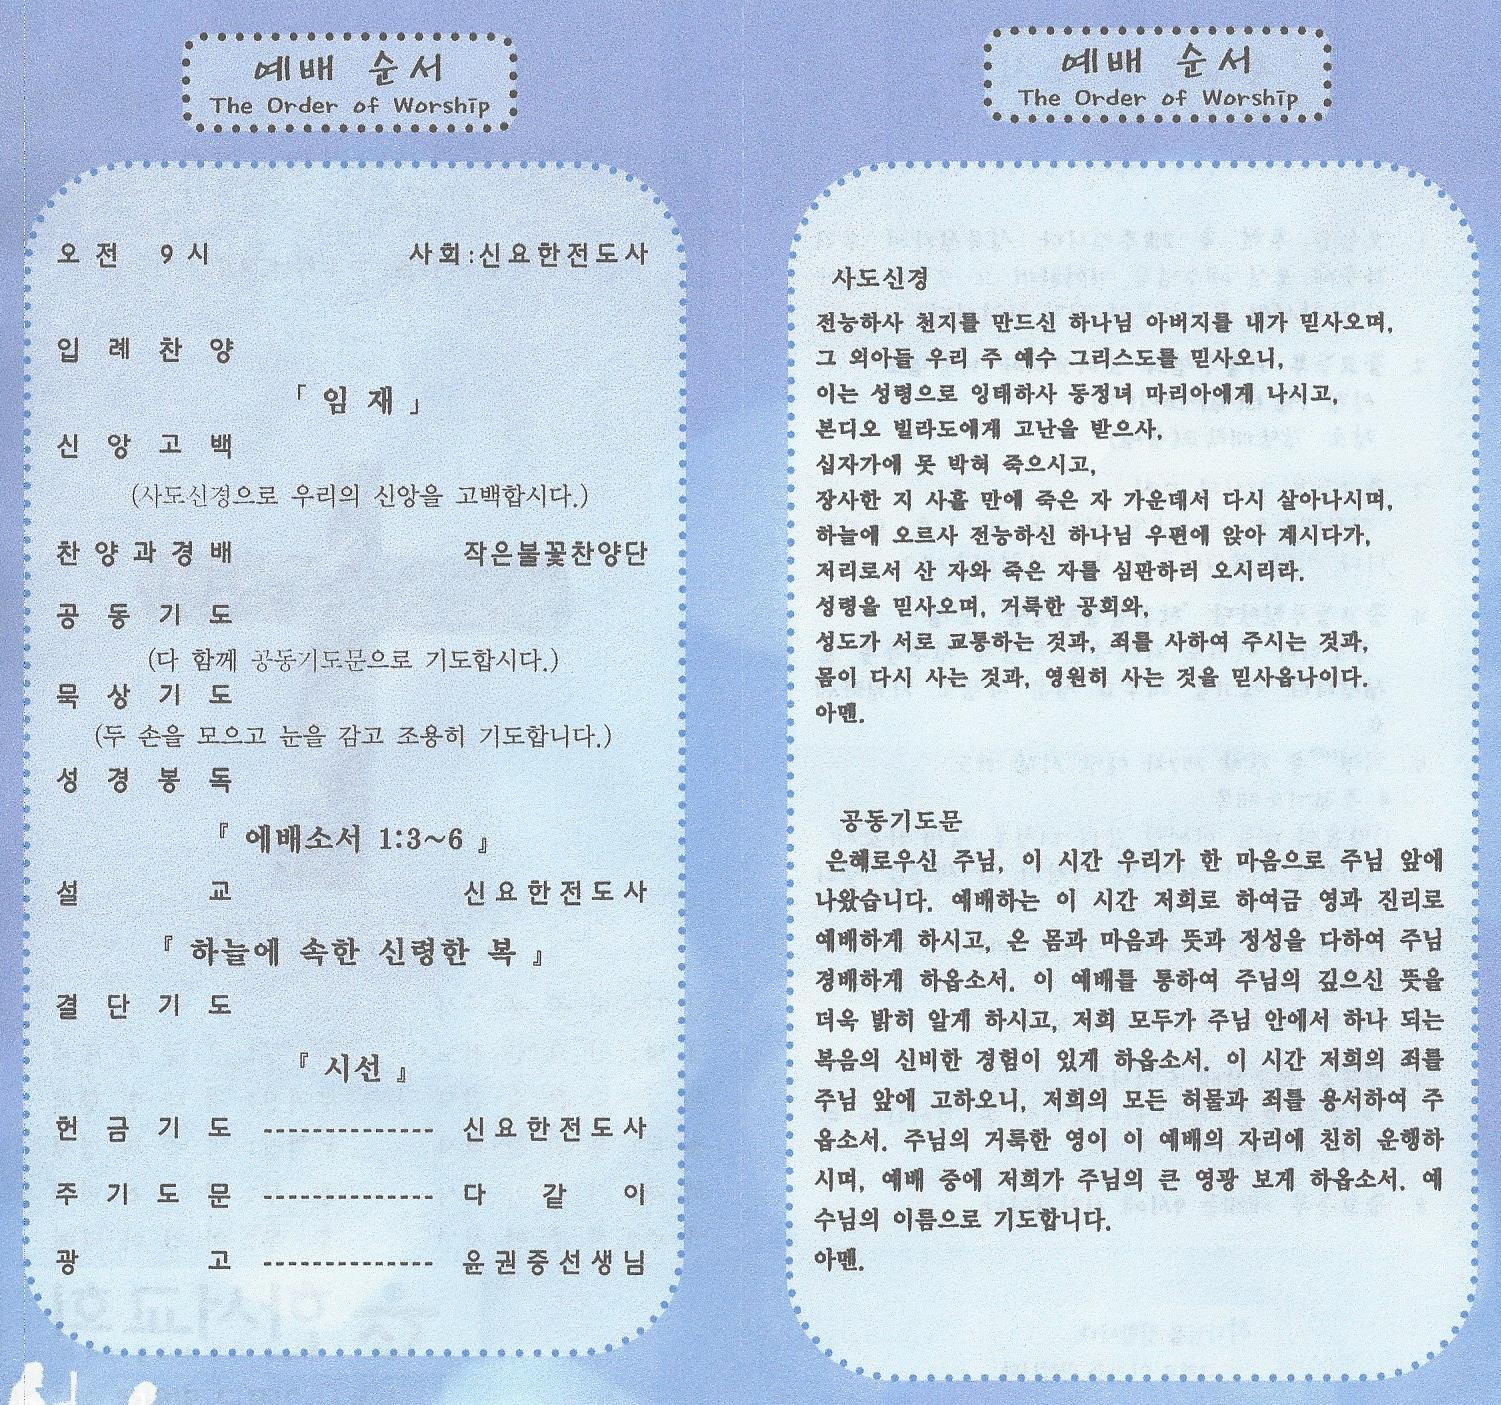 예배 순서
The Order of Worship
오전 9시 사회:신요한전도사
입례찬양
「임재」
신앙고백
(사도신경으로 우리의 신앙을 고백합시다.)
찬양과경배 작은불꽃찬양단
공동기도
(다 함께 공동기도문으로 기도합시다.)
묵상기도
(두 손을 모으고 눈을 감고 조용히 기도합니다.)
성경봉독
『 에배소서 1:3~6 』
설교 신요한전도사
『 하늘에 속한 신령한 복 』
결단기도
『 시선 』
헌금기도 ------------- 신요한전도사
주기도문 ------------- 다같이
광고 ------------- 윤권중선생님
예배 순서
The Order of Worship
사도신경
전능하사 천지를 만드신 하나님 아버지를 내가 믿사오며,
그 외아들 우리 주 예수 그리스도를 믿사오니,
이는 성령으로 잉태하사 동정녀 마리아에게 나시고,
본디오 빌라도에게 고난을 받으사,
십자가에 못 박혀 죽으시고,
장사한 지 사흘 만에 죽은 자 가운데서 다시 살아나시며,
하늘에 오르사 전능하신 하나님 우편에 앉아 계시다가,
저리로서 산 자와 죽은 자를 심판하러 오시리라.
성령을 믿사오며, 거룩한 공회와,
성도가 서로 교통하는 것과, 죄를 사하여 주시는 것과,
몸이 다시 사는 것과, 영원히 사는 것을 믿사옵나이다.
아멘.
공동기도문
은혜로우신 주님, 이 시간 우리가 한 마음으로 주님 앞에
나왔습니다. 예배하는 이 시간 저희로 하여금 영과 진리로
예배하게 하시고, 온 몸과 마음과 뜻과 정성을 다하여 주님
경배하게 하옵소서. 이 예배를 통하여 주님의 깊으신 뜻을
더욱 밝히 알게 하시고, 저희 모두가 주님 안에서 하나 되는
복음의 신비한 경험이 있게 하옵소서. 이 시간 저희의 죄를
주님 앞에 고하오니, 저희의 모든 허물과 죄를 용서하여 주
옵소서. 주님의 거룩한 영이 이 예배의 자리에 친히 운행하
시며, 예배 중에 저희가 주님의 큰 영광 보게 하옵소서. 예
수님의 이름으로 기도합니다.
아멘.